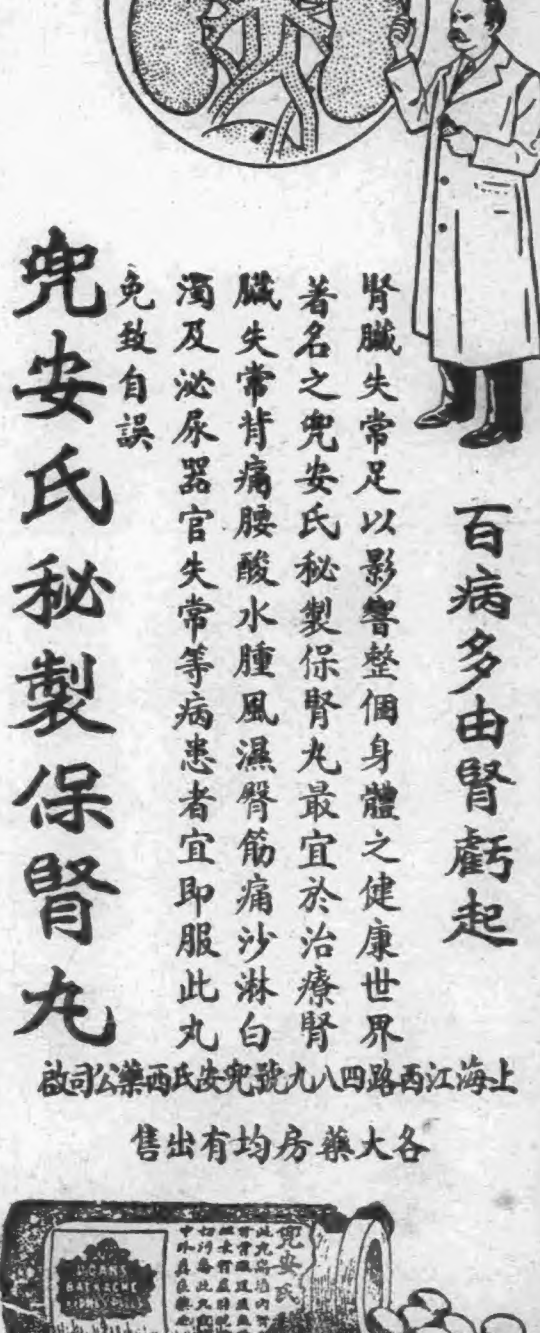 百病多由腎虧起
腎臟失常足以影響整個身體之健康世界
著名之兜安氏秘製保腎丸最宜於治療腎
臟失常背痛腰酸水腫風濕臀筋痛沙淋白
濁及泌尿器官失常等病患者宜即服此丸
免致自誤
兜安氏秘製保腎丸
上海江西路四八九號兜安氏西藥公司啟
各大藥房均有出售
兜安氏
DOANS
BACKACHE
KIDNEY PILLS